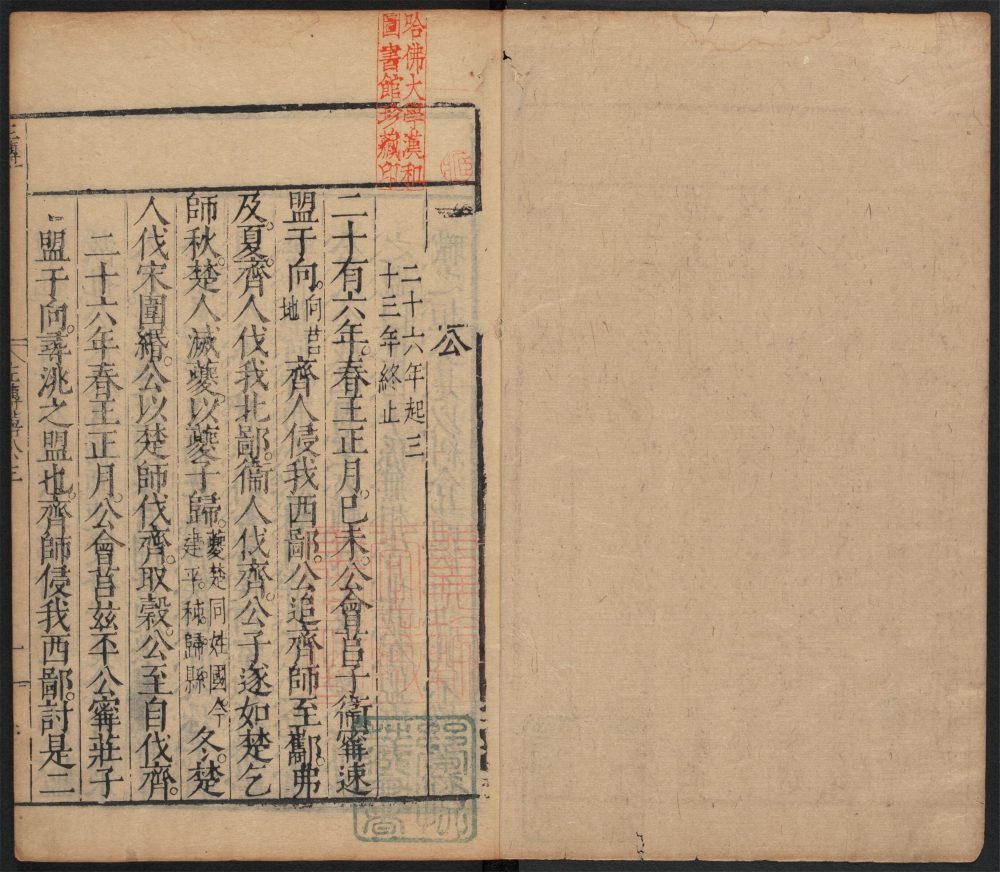 哈佛大學漢和
圖書館珍藏印
公
二十六年起三
十三年終止
二十有六年。春王正月。已未。公會莒子衞甯速
盟于向。向莒地齊人侵我西鄙。公追齊師至酅。弗
及。夏。齊人伐我北鄙。衞人伐齊。公子遂如楚乞
師。秋。楚人滅夔。以夔子歸。夔楚同姓國。今建平。秭歸縣冬。楚
人伐宋圍緡。公以楚師伐齊。取穀。公至自伐齊。
二十六年春王正月。公會莒茲丕公甯莊子
盟于向。尋洮之盟也。齊師侵我西鄙。討是二